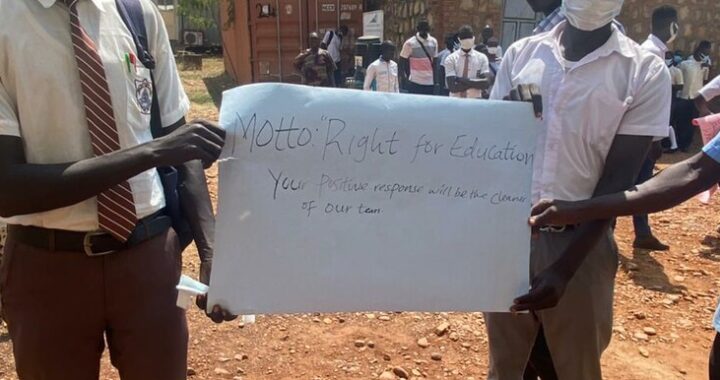 Motto: "Right for Education
Your Positive response will be the cleaner
of our tears